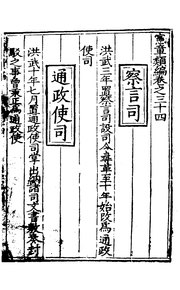 憲章類編卷之三十四
察言司
洪武三年置察言司設司令尋革至十年始改為通政
使司
通政使司
洪武十年七月置通政使司掌出納諸司文書敷奏封
駁之事曾秉正為通政使